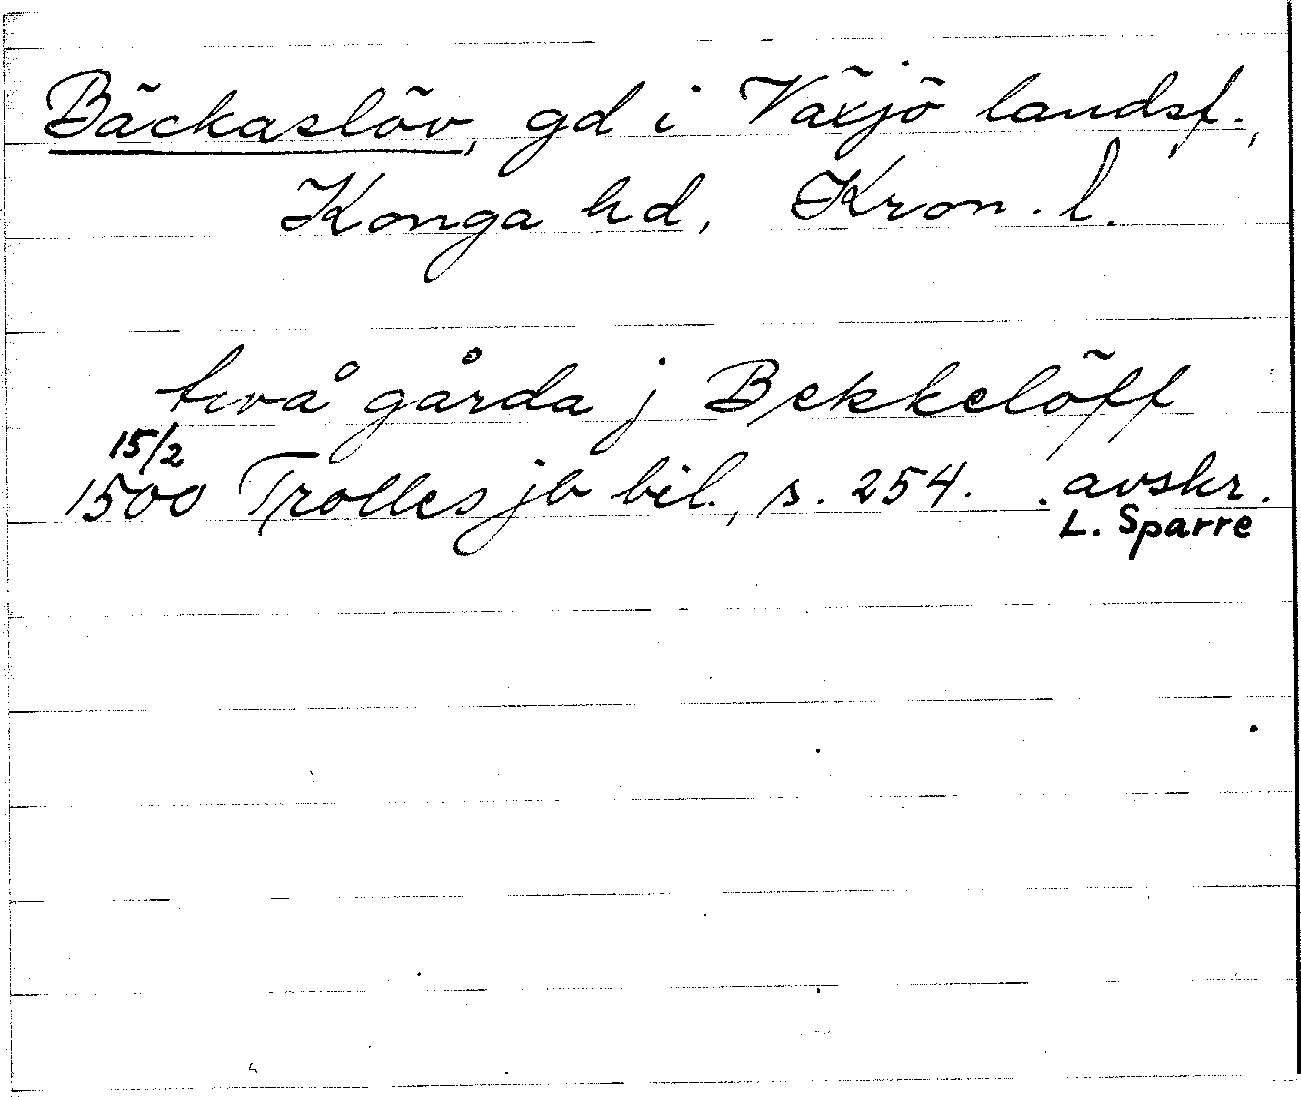 Bäckaslöv, gd i Växjö landsf.,
Konga hd, Kron. l.
twå gårda j Bekkelöff
15/2
1500 Trolles jb bil., s. 254. . avskr.
L. Sparre